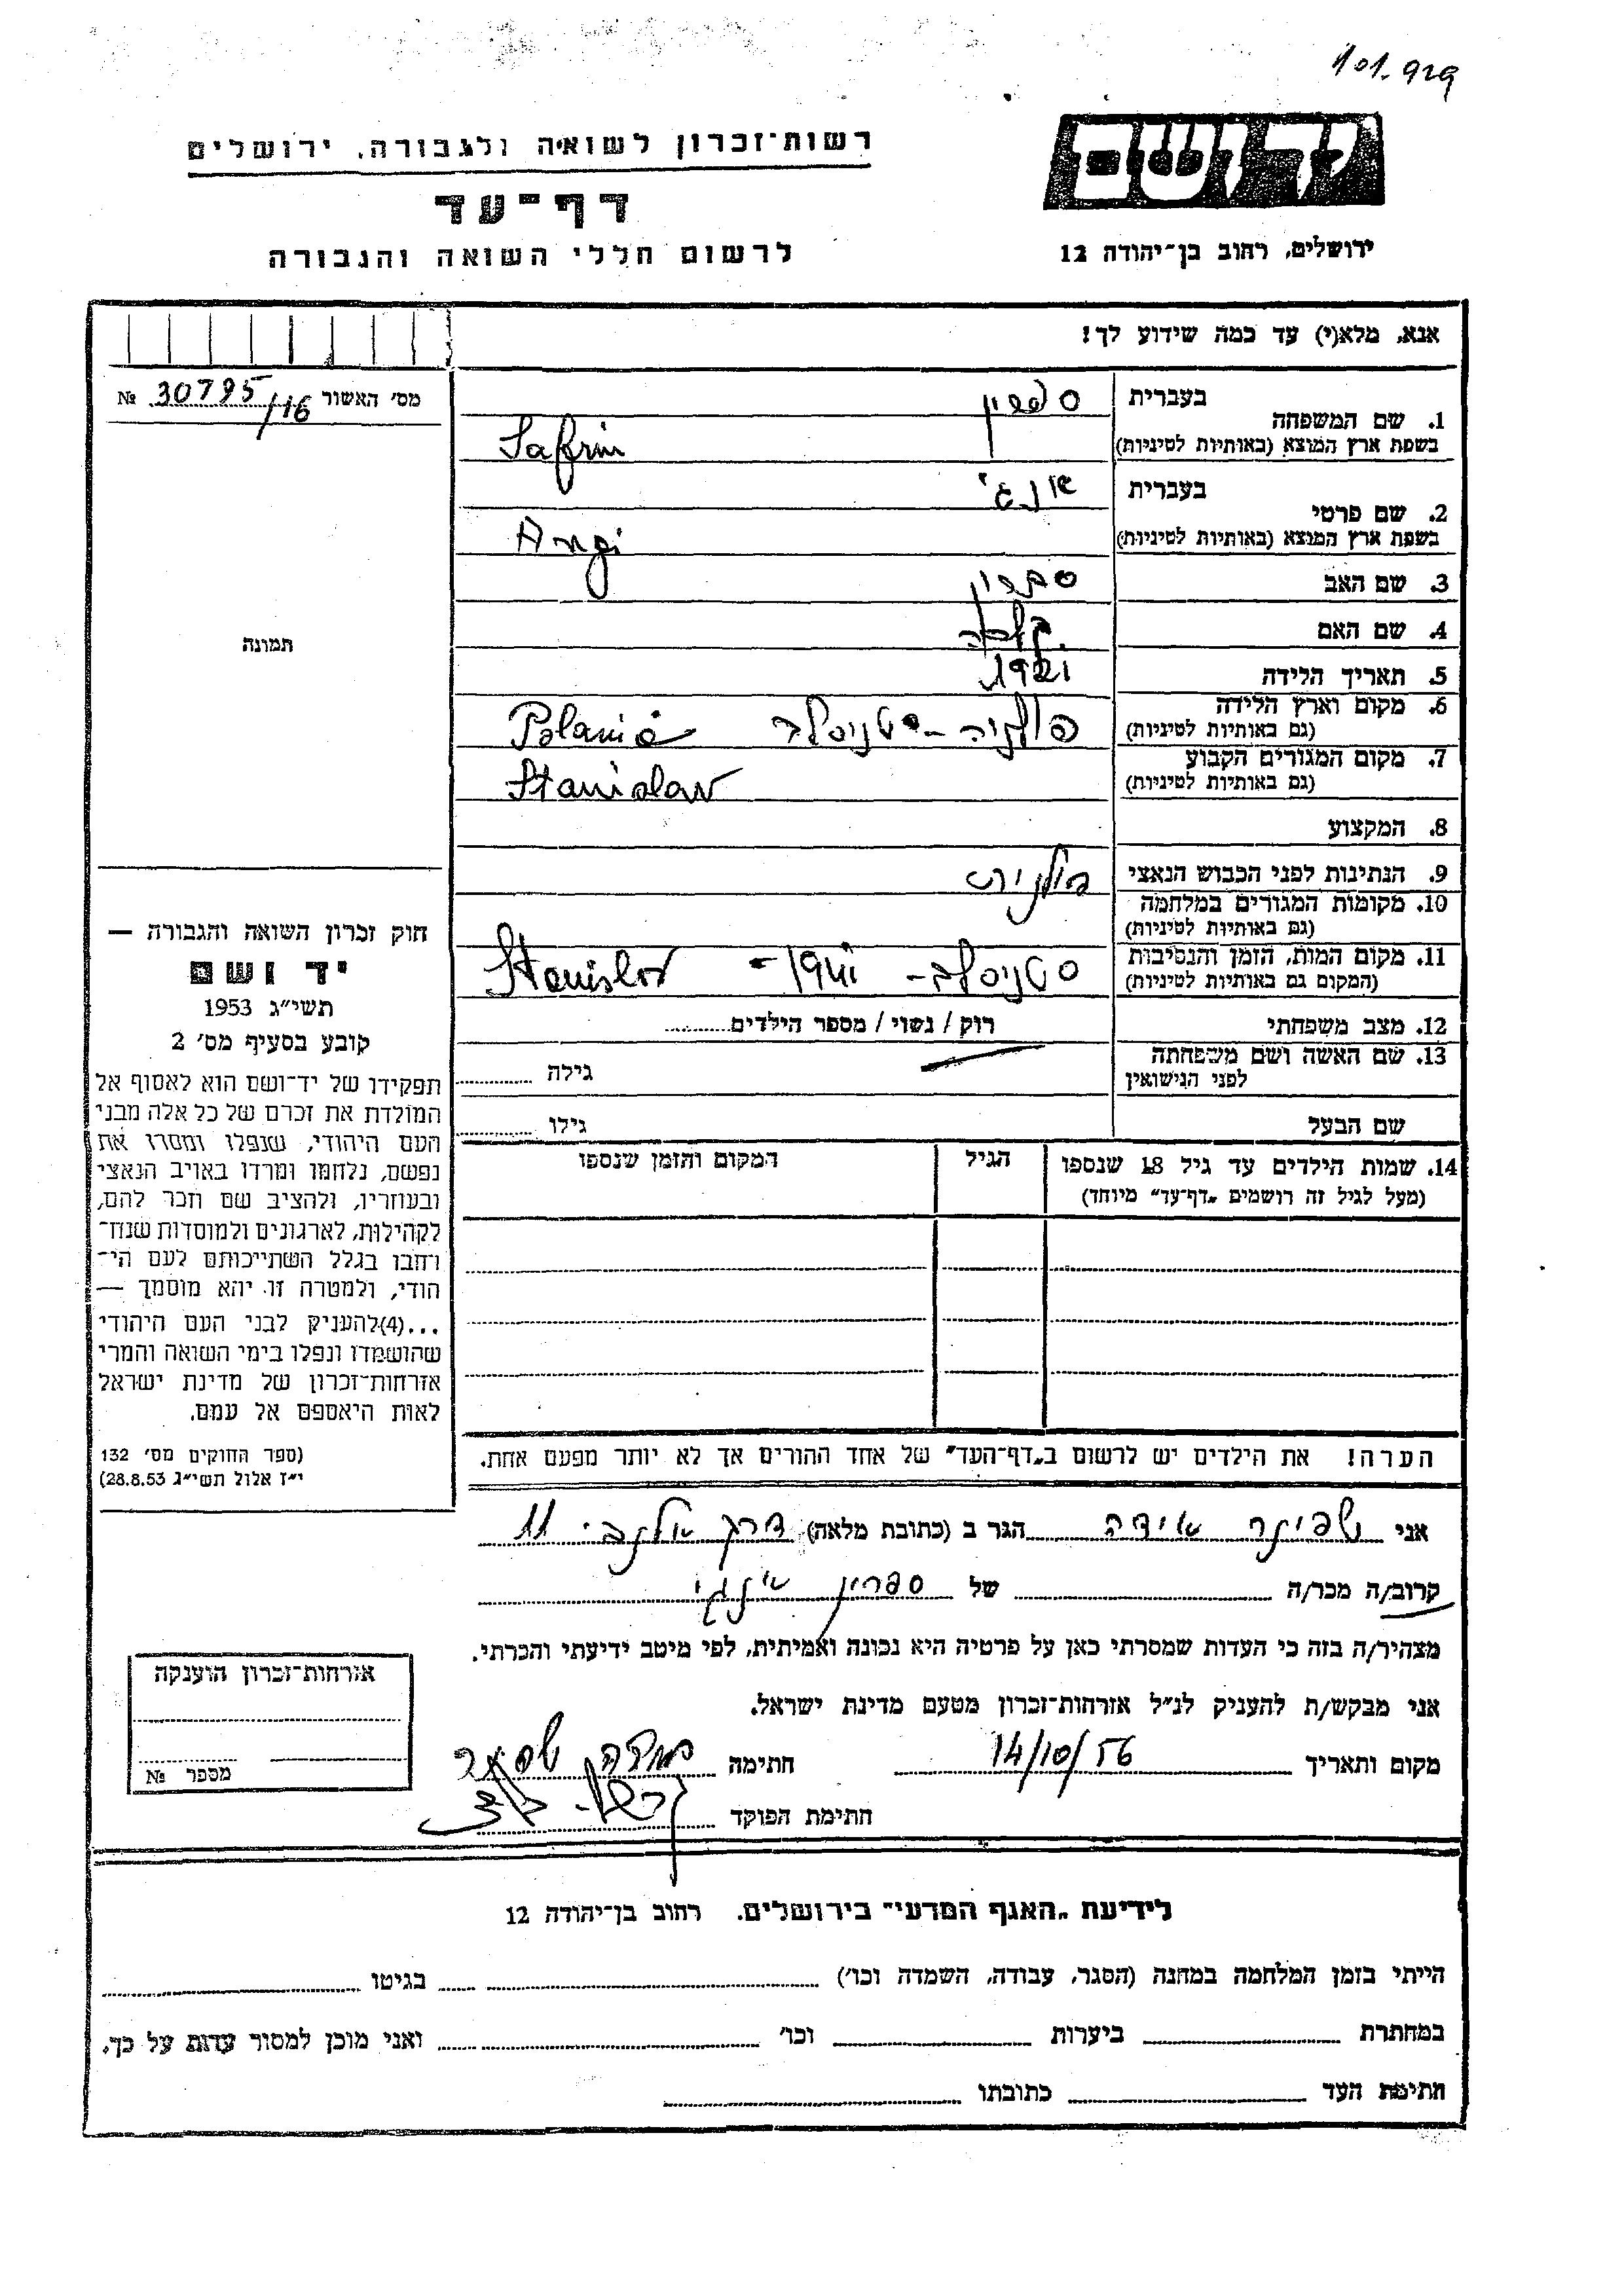 101.929
רשות־זכרון לשואה ולגבורה, ירושלים
דף־עד
לרשום חללי השואה והגבורה
יד ושם
ירושלים, רחוב בן־יהודה 12
אנא, מלא(י) עד כמה שידוע לך!
מס׳ האשור № 30795/16
תמונה
1. שם המשפחה
בעברית ספרין
בשפת ארץ המוצא (באותיות לטיניות) Safrin
2. שם פרטי
בעברית אנגי
בשפת ארץ המוצא (באותיות לטיניות) Angi
3. שם האב ספרין
4. שם האם
5. תאריך הלידה 1921
6. מקום וארץ הלידה פולניה - סטניסלב Polania
(גם באותיות לטיניות)
7. מקום המגורים הקבוע Stanislaw
(גם באותיות לטיניות)
8. המקצוע
9. הנתינות לפני הכבוש הנאצי פולנית
10. מקומות המגורים במלחמה
(גם באותיות לטיניות)
11. מקום המות, הזמן והנסיבות סטניסלב - 1941 - Stanislov
(המקום גם באותיות לטיניות)
12. מצב משפחתי רוק / נשוי / מספר הילדים
13. שם האשה ושם משפחתה
לפני הנישואין גילה
שם הבעל גילו
14. שמות הילדים עד גיל 18 שנספו הגיל המקום והזמן שנספו
(מעל לגיל זה רושמים „דף־עד״ מיוחד)
הערה! את הילדים יש לרשום ב„דף־העד״ של אחד ההורים אך לא יותר מפעם אחת.
חוק זכרון השואה והגבורה —
יד ושם
תשי״ג 1953
קובע בסעיף מס׳ 2
תפקידו של יד־ושם הוא לאסוף אל
המולדת את זכרם של כל אלה מבני
העם היהודי, שנפלו ומסרו את
נפשם, נלחמו ומרדו באויב הנאצי
ובעוזריו, ולהציב שם וזכר להם,
לקהילות, לארגונים ולמוסדות שנח־
רחבו בגלל השתייכותם לעם הי־
הודי, ולמטרה זו יהא מוסמך —
...(4)להעניק לבני העם היהודי
שהושמדו ונפלו בימי השואה והמרי
אזרחות־זכרון של מדינת ישראל
לאות היאספם אל עמם.
(ספר החוקים מס׳ 132
י״ז אלול תשי״ג 28.8.53)
אני שפיצר אידה הגר ב (כתובת מלאה) דרך אלנבי 11
קרוב/ה מכר/ה של ספרין אנגי
מצהיר/ה בזה כי העדות שמסרתי כאן על פרטיה היא נכונה ואמיתית, לפי מיטב ידיעתי והכרתי.
אני מבקש/ת להעניק לנ״ל אזרחות־זכרון מטעם מדינת ישראל.
מקום ותאריך 14/10/56 חתימה
חתימת הפוקד
אזרחות־זכרון הוענקה
מספר №
לידיעת „האגף המדעי״ בירושלים. רחוב בן־יהודה 12
הייתי בזמן המלחמה במחנה (הסגר, עבודה, השמדה וכו׳) בגיטו
במחתרת ביערות וכו׳ ואני מוכן למסור עדות על כך.
חתימת העד כתובתו